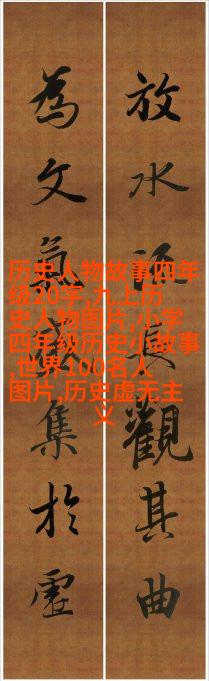 放水觀其曲
為文氣集於虛
历史人物故事四年
级20字,九上历
史人物图片,小学
四年级历史小故事
,世界100名人
图片,历史虚无主
义